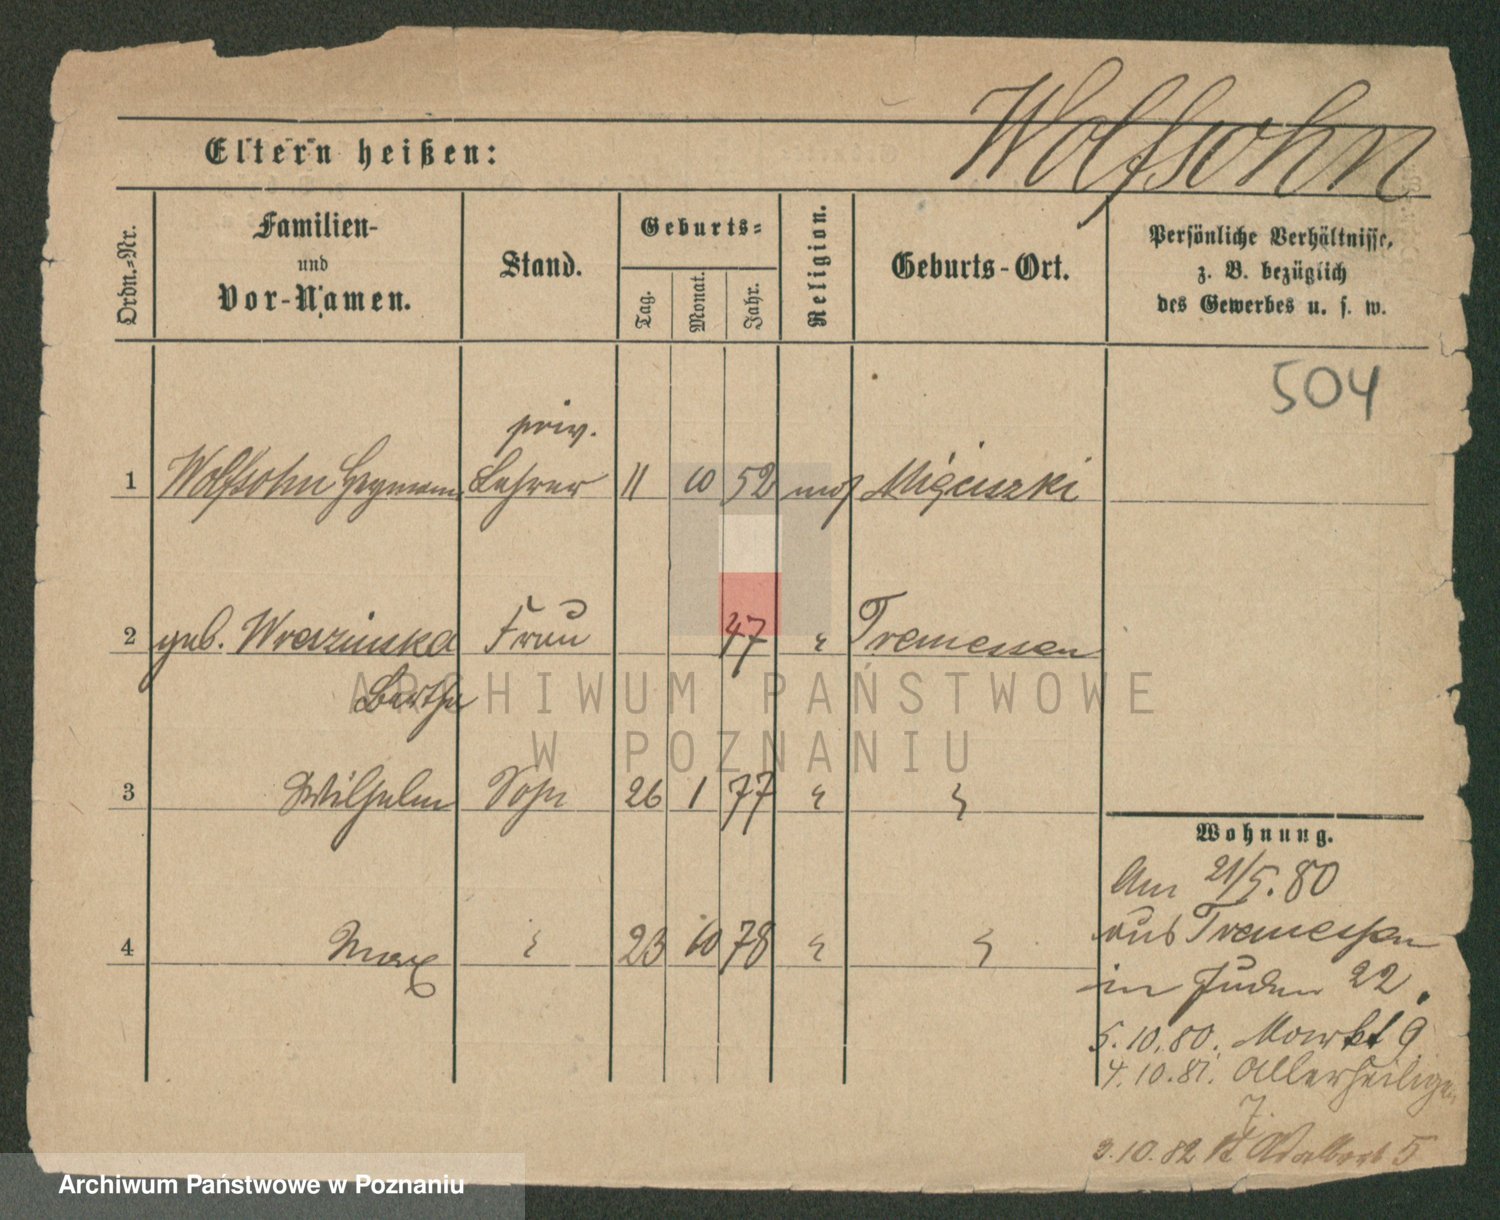 Wolfsohn
Eltern heißen:
Ordn.-Nr.
Familien-
und
Vor-Namen.
Stand.
Geburts-
Tag.
Monat.
Jahr.
Religion.
Geburts-Ort.
Persönliche Verhältnisse,
z. B. bezüglich
des Gewerbes u. s. w.
504
priv.
1 Wolfsohn Heymann Lehrer 11 10 52 mos
2 geb. Wreszinska Frau 47 " Tremessen
Bertha
ARCHIWUM PAŃSTWOWE
W POZNANIU
3 Wilhelm Sohn 26 1 77 " "
4 Max " 23 10 78 " "
Wohnung.
Am 21/5.80
aus Tremessen
in Juden 22.
5.10.80. Markt 9
4.10.81. Allerheiligen
7.
3.10.82 St Adalbert 5
Archiwum Państwowe w Poznaniu